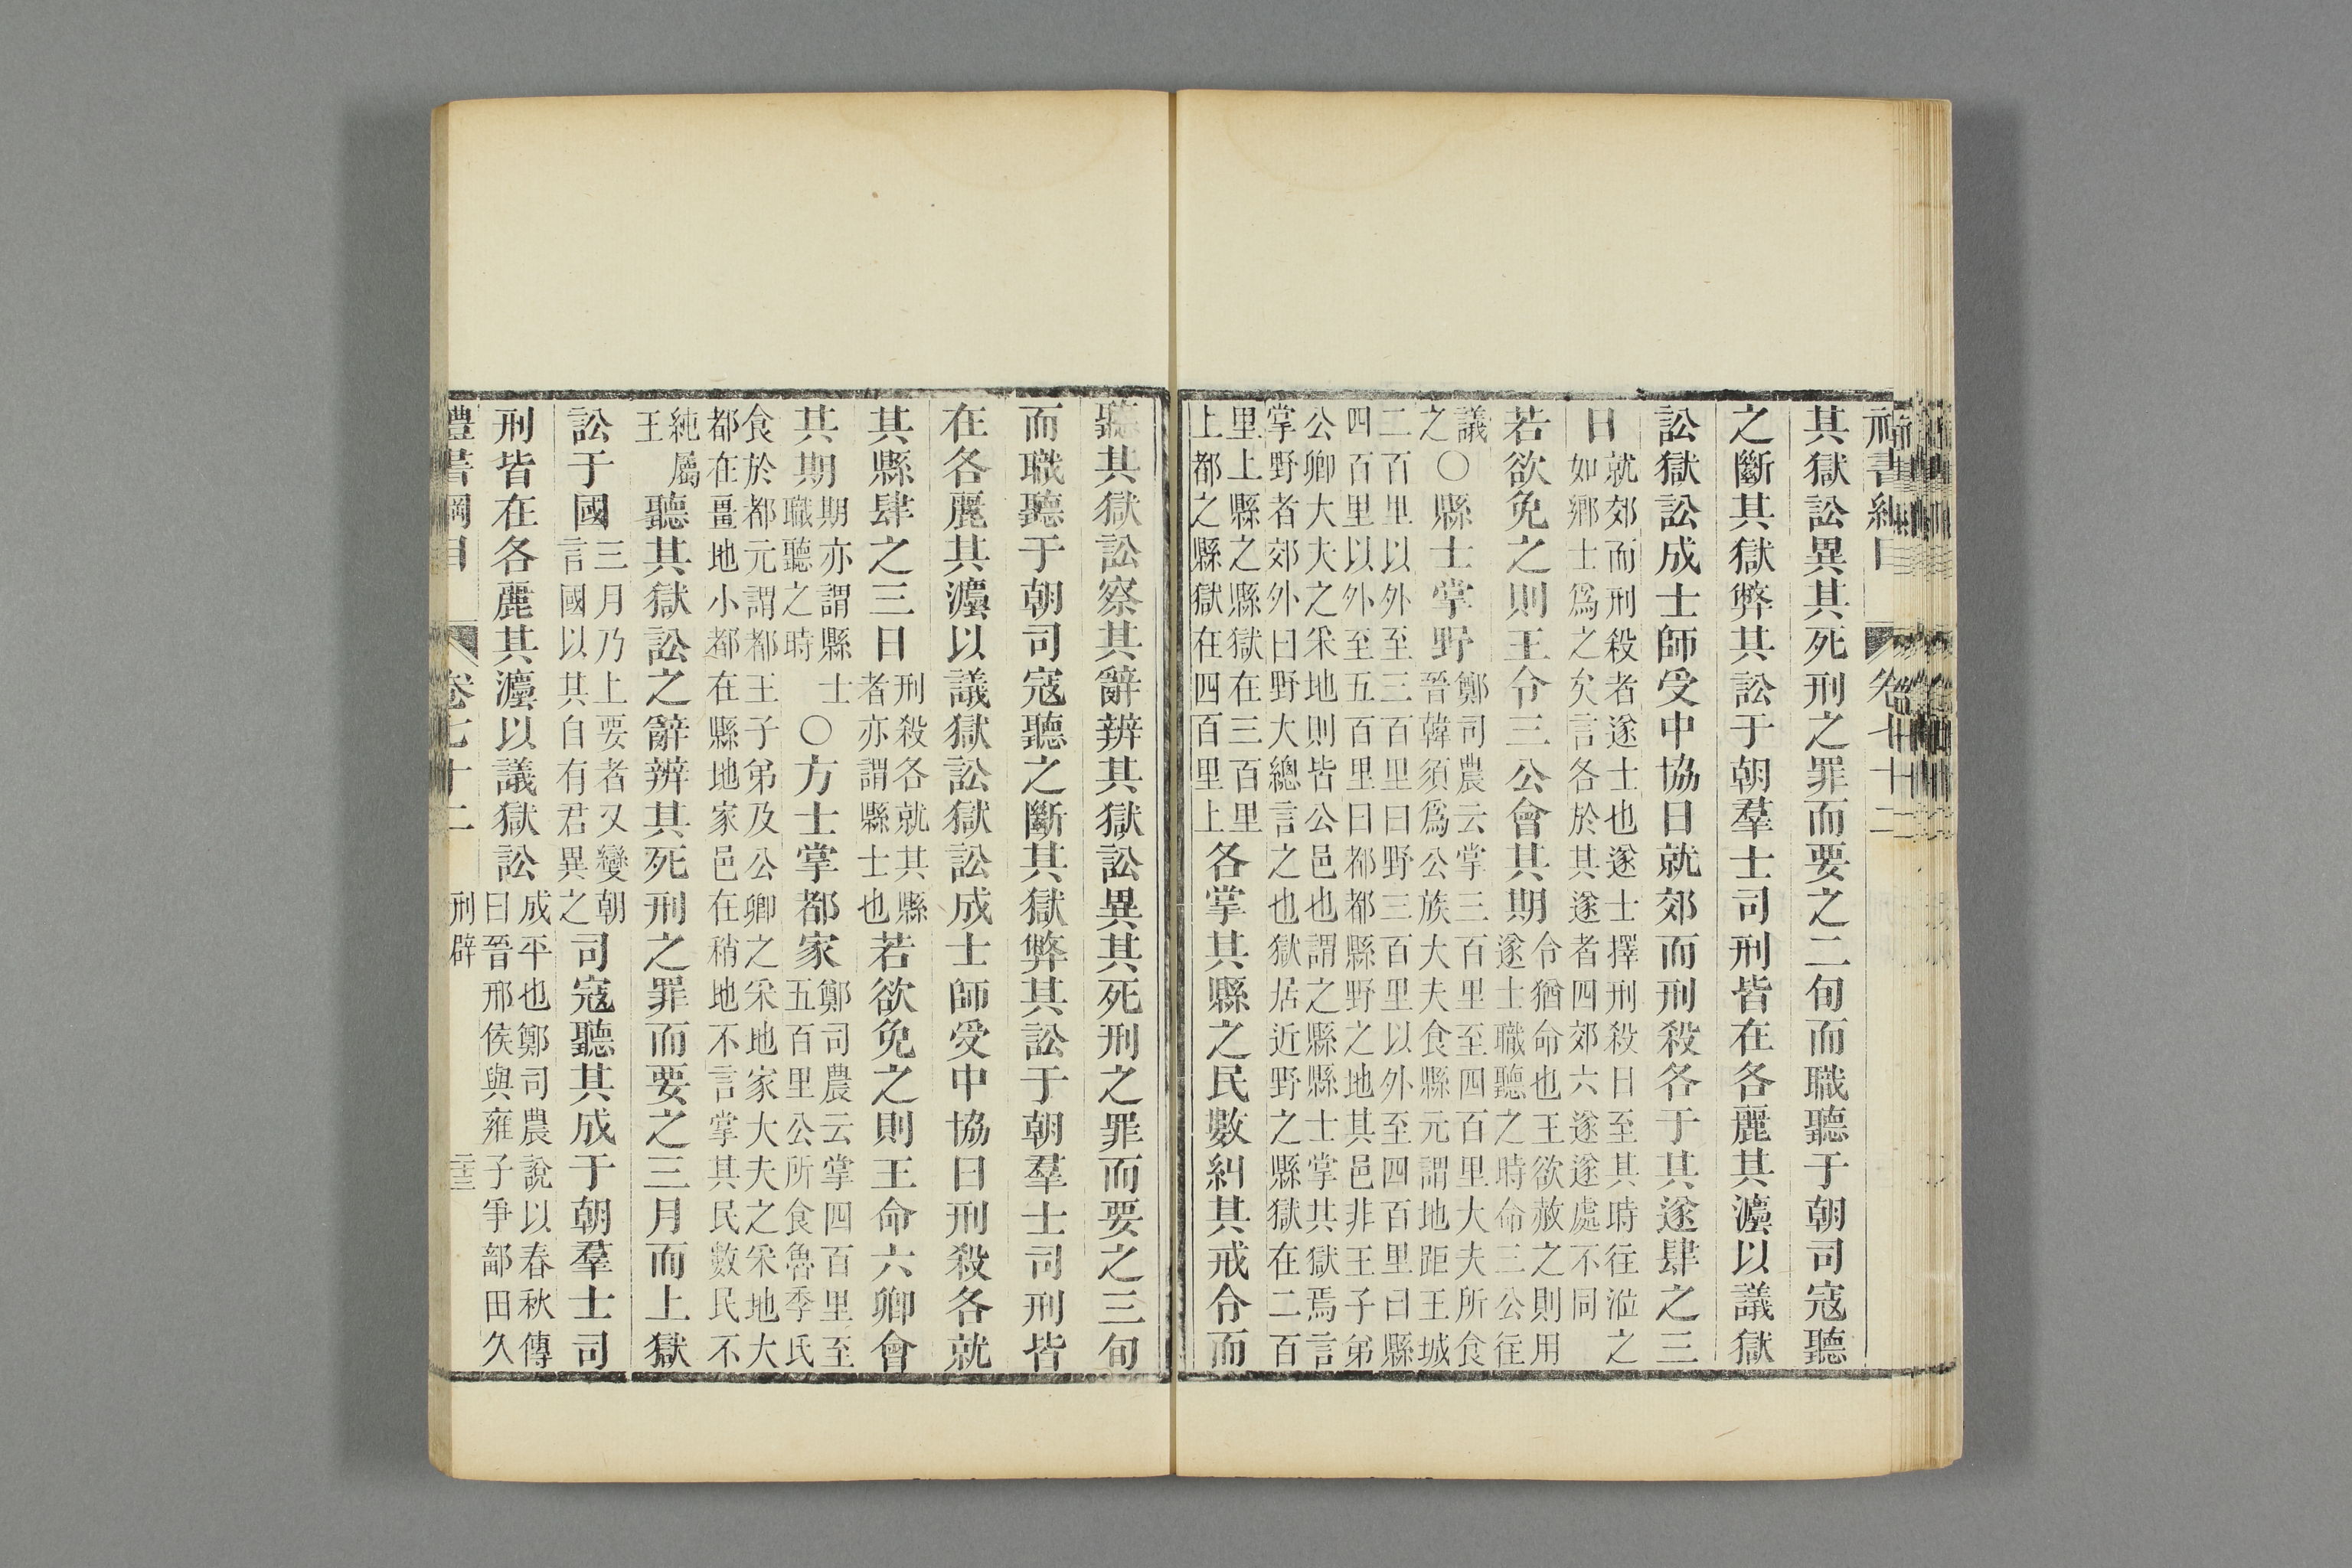 禮書綱目 卷七十二
其獄訟異其死刑之罪而要之二旬而職聽于朝司寇聽
之斷其獄弊其訟于朝羣士司刑皆在各麗其灋以議獄
訟獄訟成士師受中協日就郊而刑殺各于其遂肆之三
日就郊而刑殺者遂士也遂士擇刑殺日至其時往涖之
如鄉士爲之矣言各於其遂者四郊六遂遂處不同
若欲免之則王令三公會其期令猶命也王欲赦之則用
遂士職聽之時命三公往
議之〇縣士掌野鄭司農云掌三百里至四百里大夫所食
晉韓須爲公族大夫食縣元謂地距王城
二百里以外至三百里曰野三百里以外至四百里曰縣
四百里以外至五百里曰都都縣野之地其邑非王子弟
公卿大夫之采地則皆公邑也謂之縣縣士掌其獄焉言
掌野者郊外曰野大總言之也獄居近野之縣獄在二百
里上縣之縣獄在三百里
上都之縣獄在四百里上各掌其縣之民數糾其戒令而
聽其獄訟察其辭辨其獄訟異其死刑之罪而要之三旬
而職聽于朝司寇聽之斷其獄弊其訟于朝羣士司刑皆
在各麗其灋以議獄訟獄訟成士師受中協日刑殺各就
其縣肆之三日刑殺各就其縣
者亦謂縣士也若欲免之則王命六卿會
其期期亦謂縣士
職聽之時〇方士掌都家鄭司農云掌四百里至
五百里公所食魯季氏
食於都元謂都王子弟及公卿之采地家大夫之采地大
都在畺地小都在縣地家邑在稍地不言掌其民數民不
純屬
王聽其獄訟之辭辨其死刑之罪而要之三月而上獄
訟于國三月乃上要者又變朝
言國以其自有君異之司寇聽其成于朝羣士司
刑皆在各麗其灋以議獄訟成平也鄭司農說以春秋傳
曰晉邢侯與雍子爭鄐田久
禮書綱目 卷七十二 刑辟